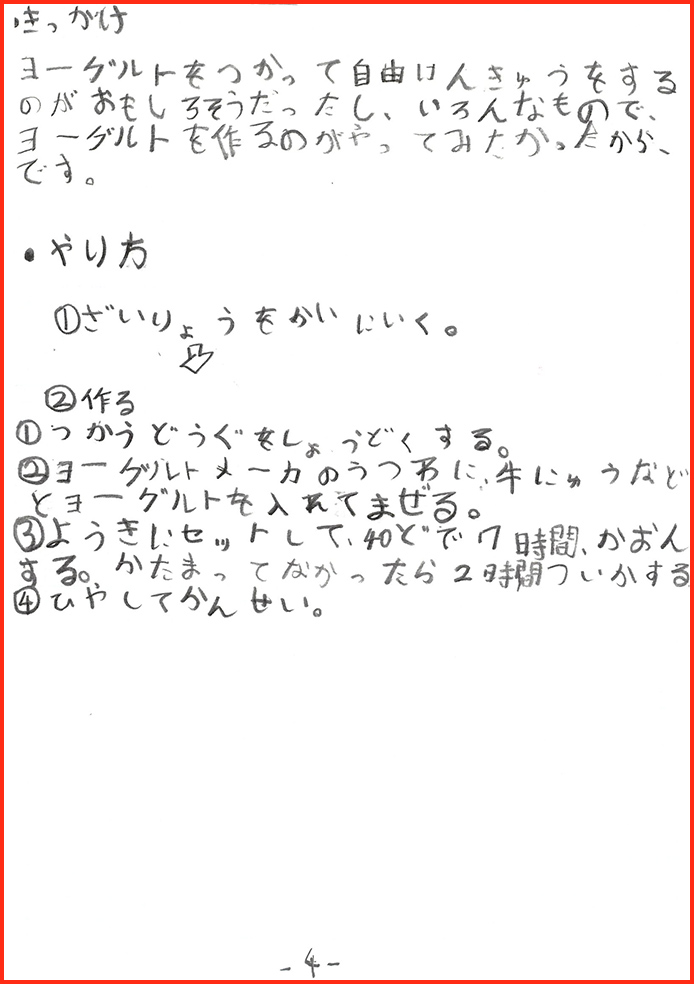 ・きっかけ
ヨーグルトをつかって自由けんきゅうをする
のがおもしろそうだったし、いろんなもので、
ヨーグルトを作るのがやってみたかったから、
です。
・やり方
①ざいりょうをかいにいく。
②作る
①つかうどうぐをしょうどくする。
②ヨーグルトメーカのうつわに、牛にゅうなど
とヨーグルトを入れてまぜる。
③ようきにセットして、40どで7時間、かおん
する。かたまってなかったら2時間ついかする
④ひやしてかんせい。
-4-